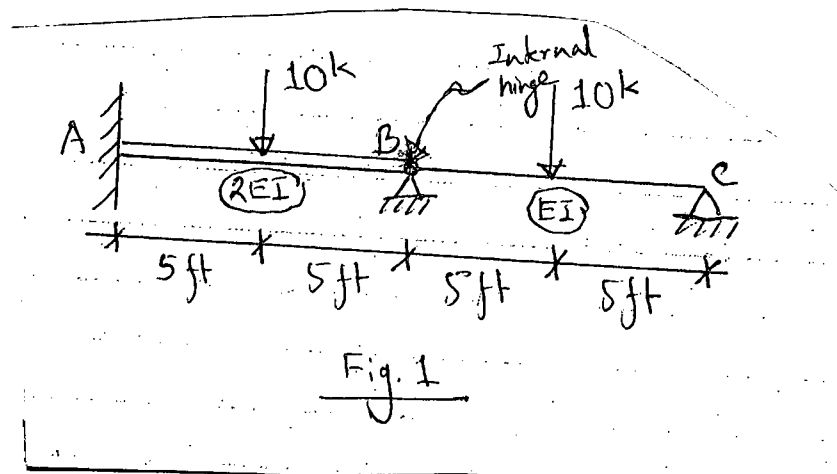 Internal
hinge
10k
10k
A
B
C
2EI
EI
5ft
5ft
5ft
5ft
Fig. 1